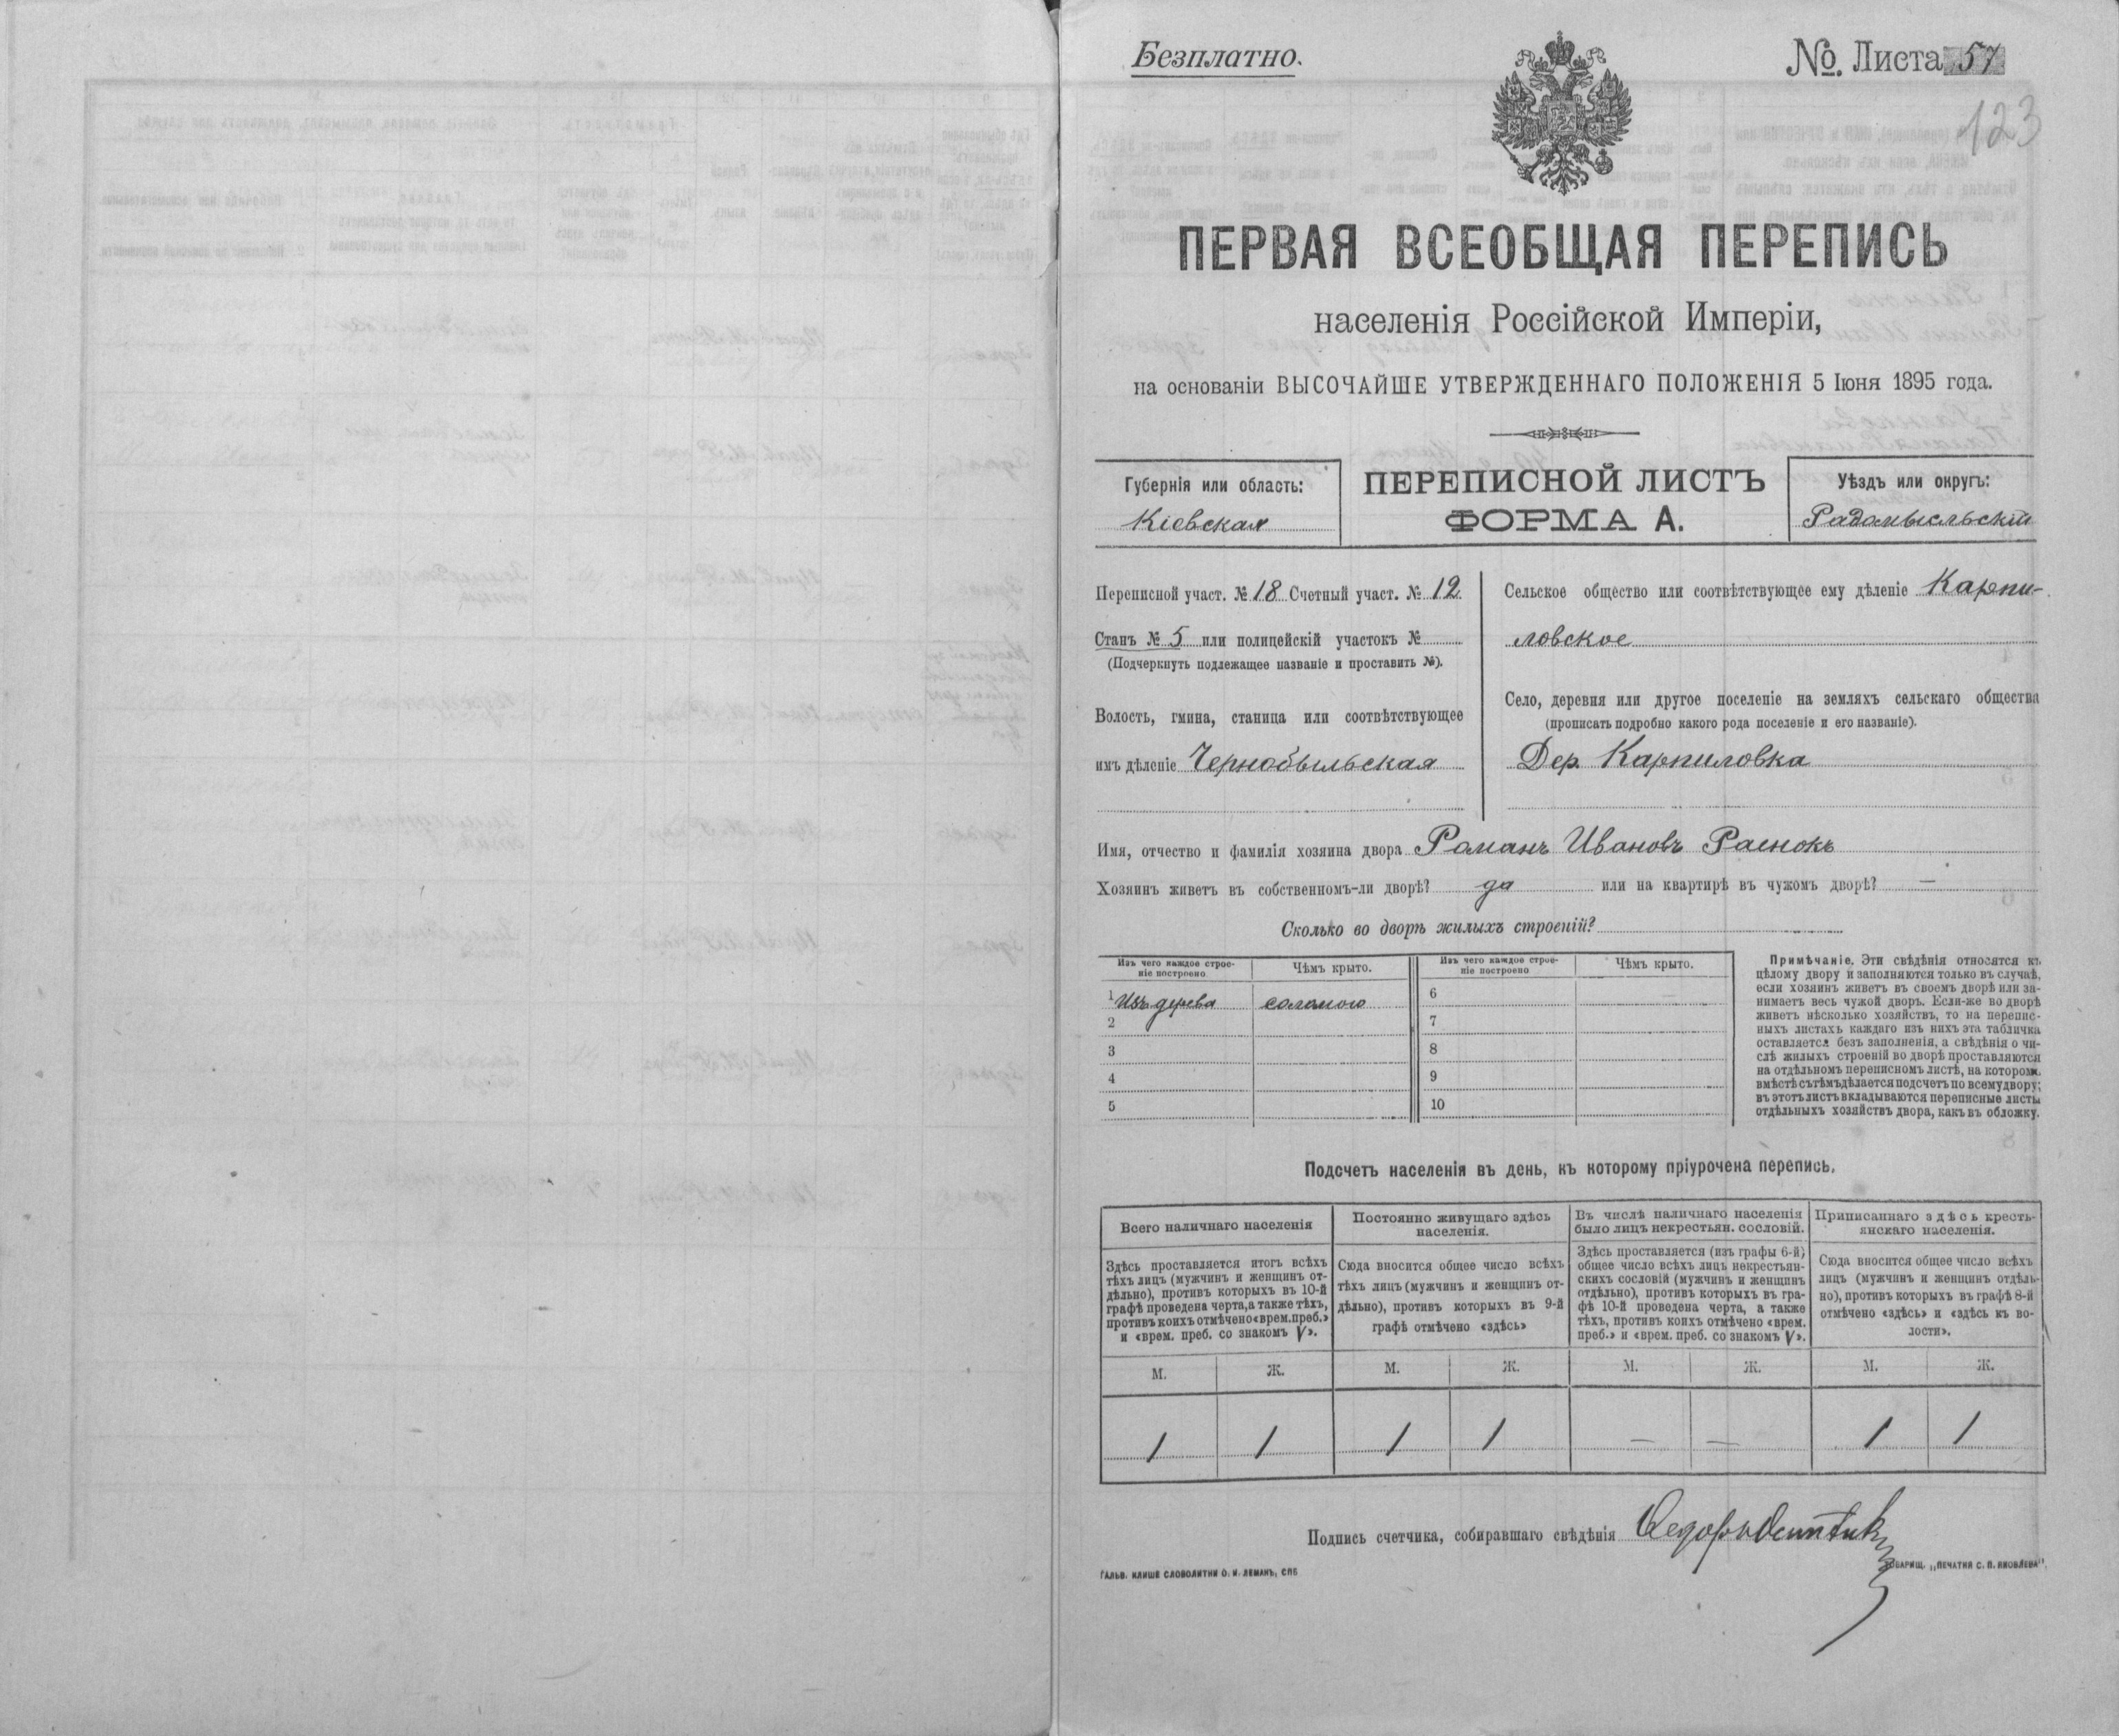 Безплатно.
№ Листа 57
123
ПЕРВАЯ ВСЕОБЩАЯ ПЕРЕПИСЬ
населенія Россійской Имперіи,
на основаніи ВЫСОЧАЙШЕ УТВЕРЖДЕННАГО ПОЛОЖЕНІЯ 5 Іюня 1895 года.
Губернія или область:
Кіевская
ПЕРЕПИСНОЙ ЛИСТЪ
ФОРМА А.
Уѣздъ или округъ:
Радомысльскій
Переписной участ. № 18 Счетный участ. № 12
Станъ № 5 или полицейскій участокъ №
(Подчеркнуть подлежащее названіе и проставить №).
Волость, гмина, станица или соотвѣтствующее
имъ дѣленіе Чернобыльская
Сельское общество или соотвѣтствующее ему дѣленіе Карпи-
ловское
Село, деревня или другое поселеніе на земляхъ сельскаго общества
(прописать подробно какого рода поселеніе и его названіе).
Дер. Карпиловка
Имя, отчество и фамилія хозяина двора Романъ Ивановъ
Хозяинъ живетъ въ собственномъ-ли дворѣ? да или на квартирѣ въ чужомъ дворѣ? —
Сколько во дворѣ жилыхъ строеній?
Изъ чего каждое строе-
ніе построено
Чѣмъ крыто.
Изъ чего каждое строе-
ніе построено
Чѣмъ крыто.
1 Изъ дерева соломою
2
3
4
5
6
7
8
9
10
Примѣчаніе. Эти свѣдѣнія относятся къ
цѣлому двору и заполняются только въ случаѣ,
если хозяинъ живетъ въ своемъ дворѣ или за-
нимаетъ весь чужой дворъ. Если-же во дворѣ
живетъ нѣсколько хозяйствъ, то на перепис-
ныхъ листахъ каждаго изъ нихъ эта табличка
оставляется безъ заполненія, а свѣдѣнія о чи-
слѣ жилыхъ строеній во дворѣ проставляются
на отдѣльномъ переписномъ листѣ, на которомъ
вмѣстѣ съ тѣмъ дѣлается подсчетъ по всему двору;
въ этотъ листъ вкладываются переписные листы
отдѣльныхъ хозяйствъ двора, какъ въ обложку.
Подсчетъ населенія въ день, къ которому пріурочена перепись.
Всего наличнаго населенія
Здѣсь проставляется итогъ всѣхъ
тѣхъ лицъ (мужчинъ и женщинъ от-
дѣльно), противъ которыхъ въ 10-й
графѣ проведена черта, а также тѣхъ,
противъ коихъ отмѣчено «врем. преб.»
и «врем. преб. со знакомъ V».
Постоянно живущаго здѣсь
населенія.
Сюда вносится общее число всѣхъ
тѣхъ лицъ (мужчинъ и женщинъ от-
дѣльно), противъ которыхъ въ 9-й
графѣ отмѣчено «здѣсь»
Въ числѣ наличнаго населенія
было лицъ некрестьян. сословій.
Здѣсь проставляется (изъ графы 6-й)
общее число всѣхъ лицъ некрестьян-
скихъ сословій (мужчинъ и женщинъ
отдѣльно), противъ которыхъ въ гра-
фѣ 10-й проведена черта, а также
тѣхъ, противъ коихъ отмѣчено «врем.
преб.» и «врем. преб. со знакомъ V».
Приписаннаго здѣсь кресть-
янскаго населенія.
Сюда вносится общее число всѣхъ
лицъ (мужчинъ и женщинъ отдѣль-
но), противъ которыхъ въ графѣ 8-й
отмѣчено «здѣсь» и «здѣсь къ во-
лости».
М. Ж. М. Ж. М. Ж. М. Ж.
1 1 1 1 — — 1 1
Подпись счетчика, собиравшаго свѣдѣнія
ГАЛЬВ. КЛИШЕ СЛОВОЛИТНИ О. И. ЛЕМАНЪ, СПБ
ТОВАРИЩ. „ПЕЧАТНЯ С. П. ЯКОВЛЕВА".